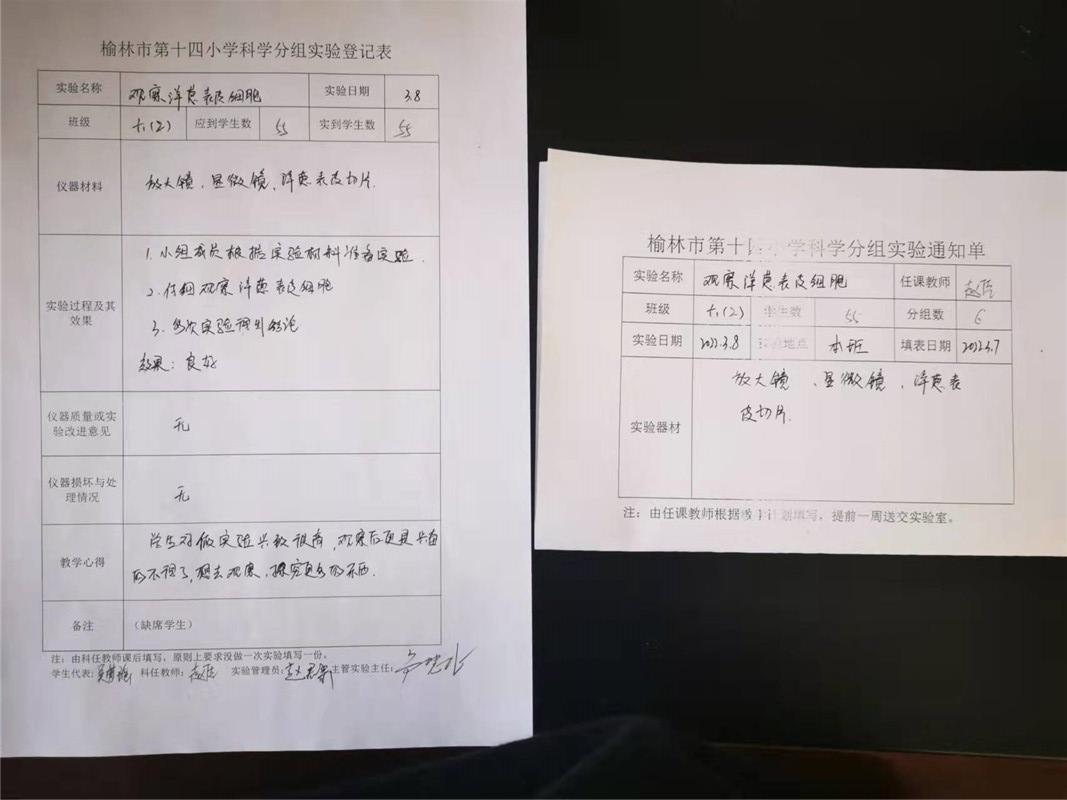 榆林市第十四小学科学分组实验登记表
实验名称 观察洋葱表皮细胞 实验日期 3.8
班级 六(2) 应到学生数 55 实到学生数 55
仪器材料 放大镜、显微镜、洋葱表皮切片.
实验过程及其效果
1. 小组成员根据实验材料准备实验.
2. 仔细观察洋葱表皮细胞
3. 多次实验得到结论
效果: 良好
仪器质量或实验改进意见 无
仪器损坏与处理情况 无
教学心得
学生对做实验兴致很高,观察后更是兴奋
的不得了,想去观察、探究更多的东西.
备注 (缺席学生)
注:由科任教师课后填写,原则上要求没做一次实验填写一份。
学生代表: 科任教师: 实验管理员: 主管实验主任:
榆林市第十四小学科学分组实验通知单
实验名称 观察洋葱表皮细胞 任课教师
班级 六(2) 学生数 55 分组数 6
实验日期 2022.3.8 实验地点 本班 填表日期 2022.3.7
实验器材
放大镜、显微镜、洋葱表
皮切片.
注:由任课教师根据教学计划填写,提前一周送交实验室。